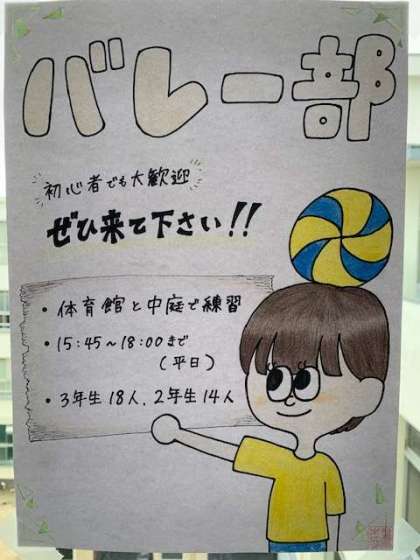 バレー部
初心者でも大歓迎
ぜひ来て下さい!!
・体育館と中庭で練習
・15:45~18:00まで
(平日)
・3年生18人、2年生14人